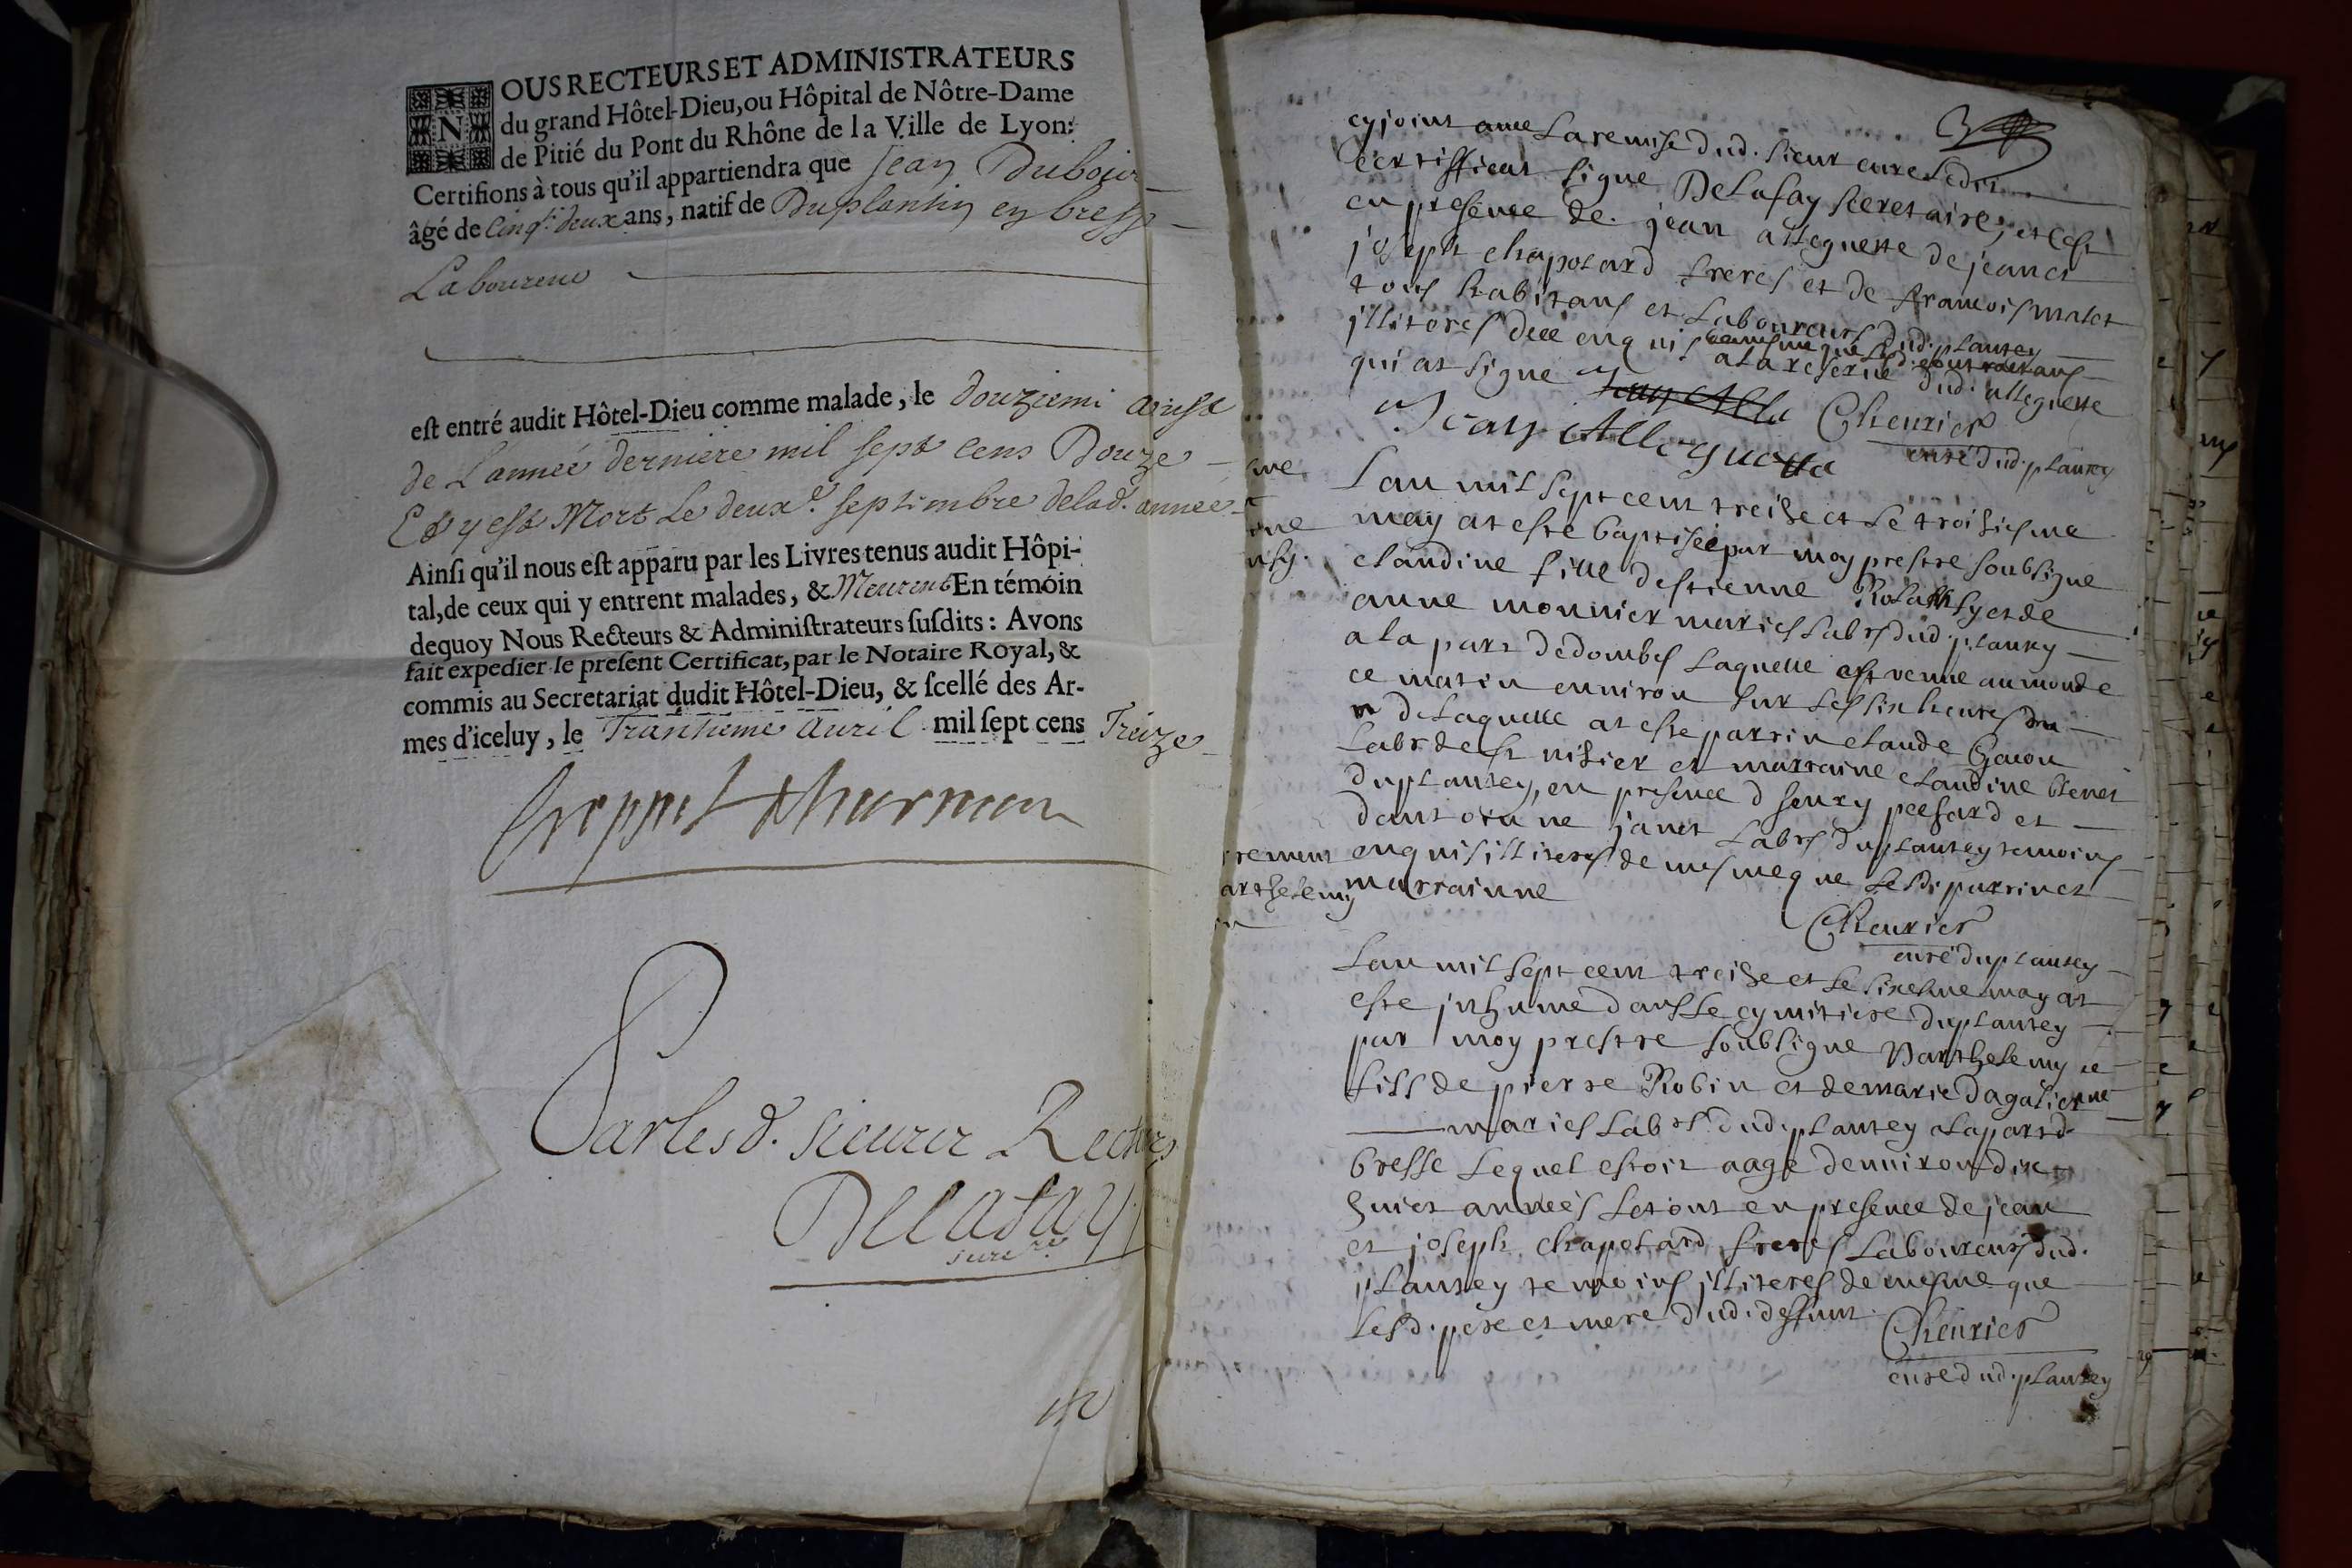 NOUS RECTEURS ET ADMINISTRATEURS
du grand Hôtel-Dieu, ou Hôpital de Nôtre-Dame
de Pitié du Pont du Rhône de la Ville de Lyon:
Certifions à tous qu'il appartiendra que Jean Dubois
âgé de Cinq.te deux ans, natif de Duplantin en bresse
Laboureur
est entré audit Hôtel-Dieu comme malade, le douziemi aoust
de L'année derniere mil sept cens Douze
Et y est Mort Le deux.e septembre delad. année
Ainsi qu'il nous est apparu par les Livres tenus audit Hôpi-
tal, de ceux qui y entrent malades, & Meurent En témoin
dequoy Nous Recteurs & Administrateurs susdits : Avons
fait expedier le present Certificat, par le Notaire Royal, &
commis au Secretariat dudit Hôtel-Dieu, & scellé des Ar-
mes d'iceluy, le Trantieme Avril mil sept cens Treize
Parlesd. sieurs Recteurs
Delafay
cy joint avec La remise dud. sieur cure Ledit
certifficat signé DeLafay secretaire, et c'est
en presence de jean alleguette de jean et
joseph chapotard freres et de francois malet
tous habitans et Laboureurs dud. plantey
jlliteres de ce enquis de mesme que
a la reserve dud. alleguette
qui at signe
Jean Alleguette Cheurier
curé dud. plantey
L'an mil sept cent treize et Le troisiesme
may at esté baptisée par moy prestre soubsigne
claudine fille d'estienne et de
anne monnier mariés Labrs dud. plantey
a la part de dombes Laquelle est venue au monde
ce matin environ sur Les six heures du
m de Laquelle at esté parrin claude Gacon
Labr de st nisier et marraine claudine
du plantey, en presence d'henry pelfard et
d'antoine janet Labrs du plantey temoins
enquis illiteres de mesme que Lesd. parrin et
marrainne
Cheurier
curé du plantey
L'an mil sept cent treize et Le sixiesme may at
esté jnhumé dans Le cymitiere du plantey
par moy prestre soubsigne Barthelemy
fils de pierre Robin et de marie
mariés Labrs dud. plantey a la part d.
bresse Lequel estoit aagé d'environ dix
huict années Le tout en presence de jean
et joseph chapotard freres Laboureurs dud.
plantey temoins jlliteres de mesme que
Lesd. pere et mere dud. deffunt.
Cheurier
curé dud. plantey